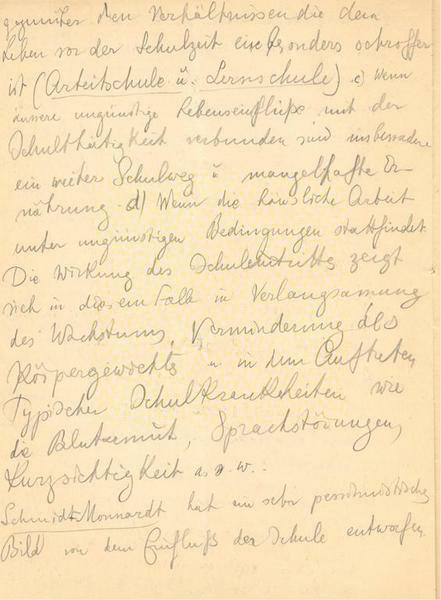 gegenüber den Verhältnissen die dem
Leben vor der Schulzeit ein besonders schroffer
ist (Arbeitschule u. Lernschule) c) Wenn
äussere ungünstige Lebenseinflüße mit der
Schulthätigkeit verbunden sind insbesondere
ein weiter Schulweg u mangelhafte Er-
nährung. d) Wenn die häusliche Arbeit
unter ungünstigen Bedingungen stattfindet
Die Wirkung des Schuleintritts zeigt
sich in diesem Fall in Verlangsamung
des Wachstums, Verminderung des
Körpergewichts u in dem Auftreten
Typischer Schulkrankheiten wie
die Blutarmut, Sprachstörungen,
Kurzsichtigkeit u.s.w.
Schmidt-Monnardt hat ein sehr pessimistisches
Bild von dem Einfluß der Schule entworfen